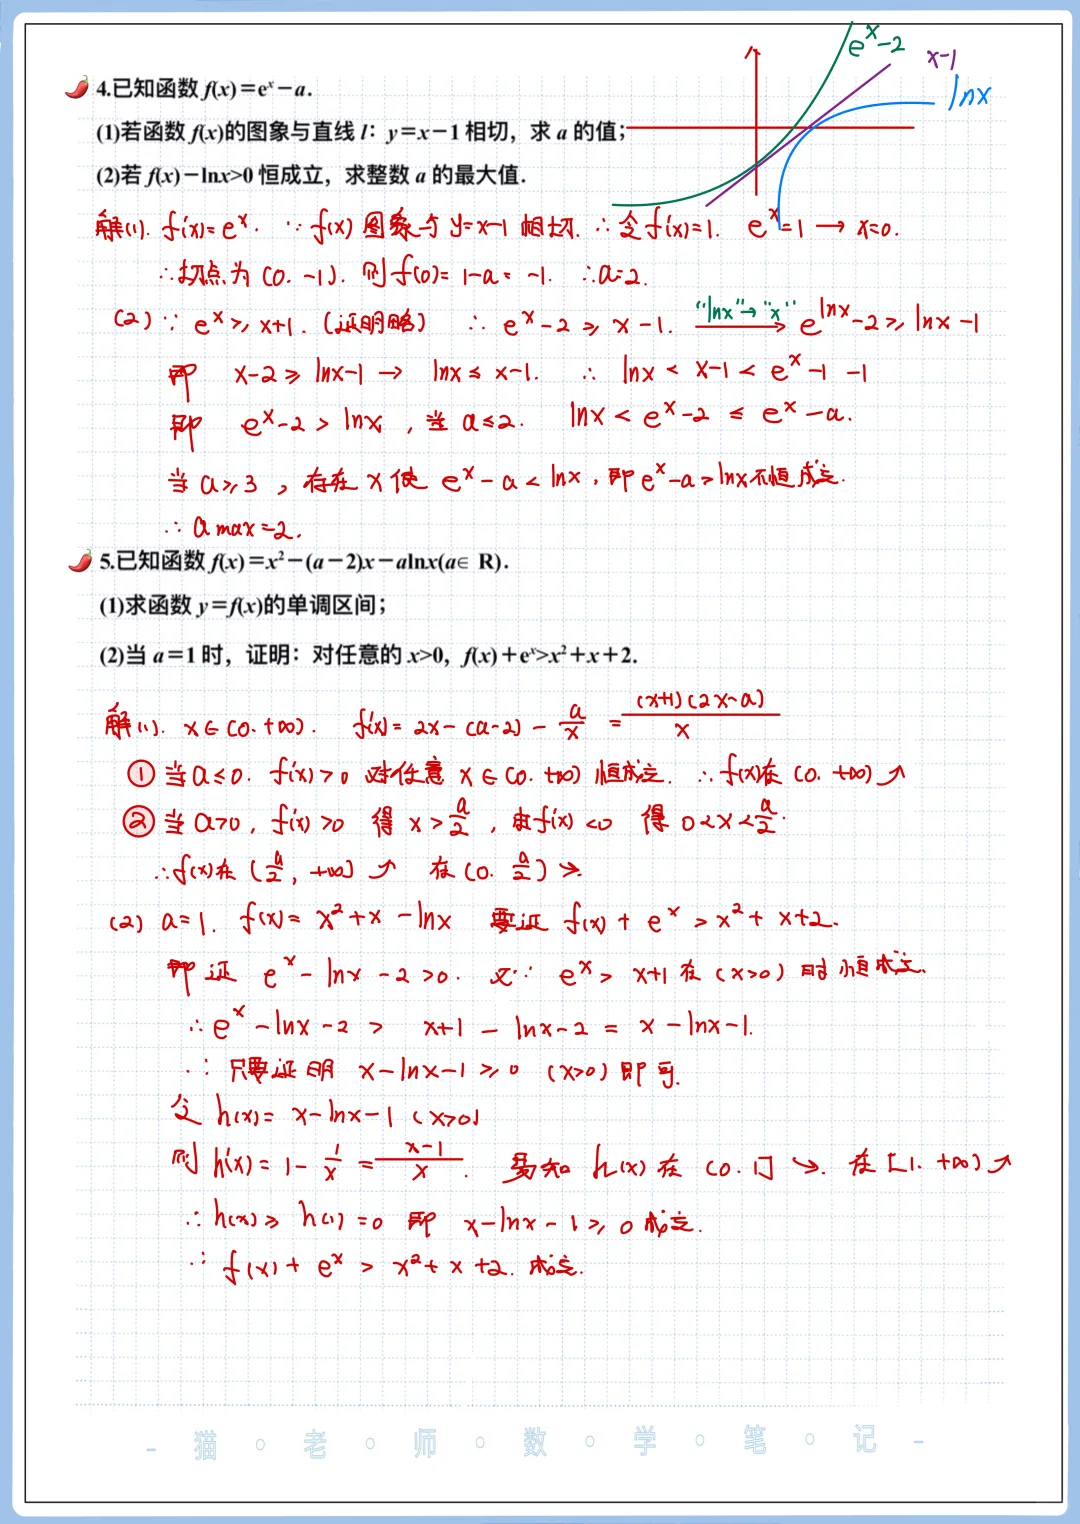 4.已知函数 f(x)=eˣ-a.
eˣ-2
x-1
lnx
(1)若函数 f(x)的图象与直线 l：y=x-1 相切，求 a 的值；
(2)若 f(x)-lnx>0 恒成立，求整数 a 的最大值.
解(1). f'(x)=eˣ. ∵ f(x)图象与y=x-1相切. ∴令f'(x)=1. eˣ=1 → x=0.
∴切点为(0.-1). 则f(0)=1-a=-1. ∴a=2.
(2) ∵ eˣ≥x+1. (证明略) ∴ eˣ-2≥x-1. "lnx"→"x" e^lnx-2≥lnx-1
即 x-2≥lnx-1 → lnx≤x-1. ∴ lnx<x-1<eˣ-1-1
即 eˣ-2>lnx，当a≤2. lnx<eˣ-2≤eˣ-a.
当a≥3，存在x使 eˣ-a<lnx，即eˣ-a>lnx不恒成立.
∴ a max=2.
5.已知函数 f(x)=x²-(a-2)x-alnx(a∈ R).
(1)求函数 y=f(x)的单调区间；
(2)当 a=1 时，证明：对任意的 x>0，f(x)+eˣ>x²+x+2.
解(1). x∈(0.+∞). f'(x)=2x-(a-2)-a/x=(x+1)(2x-a)/x
①当a≤0. f'(x)>0 对任意 x∈(0.+∞)恒成立. ∴f(x)在(0.+∞)↗
②当a>0，f'(x)>0 得 x>a/2，由f'(x)<0 得 0<x<a/2.
∴f(x)在(a/2，+∞)↗ 在(0.a/2)↘.
(2) a=1. f(x)=x²+x-lnx 要证 f(x)+eˣ>x²+x+2.
即证 eˣ-lnx-2>0. 又∵ eˣ>x+1在(x>0)时恒成立.
∴eˣ-lnx-2 > x+1-lnx-2=x-lnx-1.
∴只要证明 x-lnx-1≥0 (x>0)即可.
令 h(x)=x-lnx-1 (x>0)
则 h'(x)=1-1/x=x-1/x. 易知 h(x)在(0.1]↘. 在[1.+∞)↗
∴h(x)≥h(1)=0 即 x-lnx-1≥0成立.
∴ f(x)+eˣ>x²+x+2. 成立.
- 猫 · 老 · 师 · 数 · 学 · 笔 · 记 -